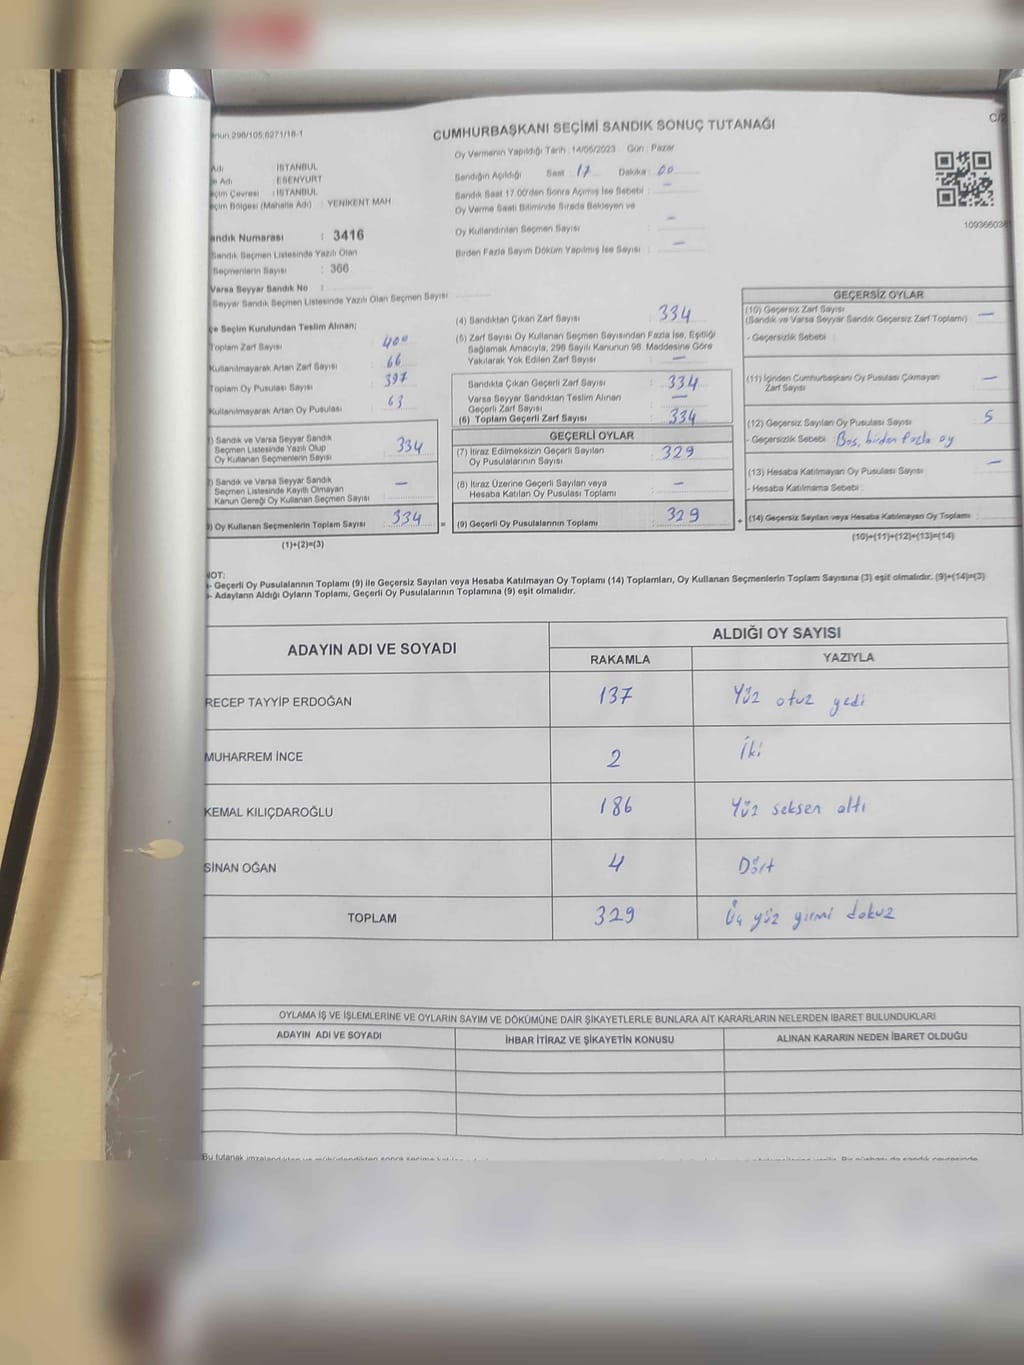 anun:298/105;6271/18-1
CUMHURBAŞKANI SEÇİMİ SANDIK SONUÇ TUTANAĞI
Oy Vermenin Yapıldığı Tarih : 14/05/2023 Gün : Pazar
Adı : İSTANBUL
e Adı : ESENYURT
eçim Çevresi : İSTANBUL
eçim Bölgesi (Mahalle Adı) : YENİKENT MAH
andık Numarası : 3416
Sandık Seçmen Listesinde Yazılı Olan
Seçmenlerin Sayısı : 366
Varsa Seyyar Sandık No :
Seyyar Sandık Seçmen Listesinde Yazılı Olan Seçmen Sayısı
Sandığın Açıldığı Saat : 17 Dakika : 00
Sandık Saat 17.00'den Sonra Açımış İse Sebebi : —
Oy Verme Saati Bitiminde Sırada Bekleyen ve
Oy Kullandırılan Seçmen Sayısı : —
Birden Fazla Sayım Döküm Yapılmış İse Sayısı : —
1093660381
çe Seçim Kurulundan Teslim Alınan;
Toplam Zarf Sayısı : 400
Kullanılmayarak Artan Zarf Sayısı : 66
Toplam Oy Pusulası Sayısı : 397
Kullanılmayarak Artan Oy Pusulası : 63
) Sandık ve Varsa Seyyar Sandık
Seçmen Listesinde Yazılı Olup
Oy Kullanan Seçmenlerin Sayısı : 334
) Sandık ve Varsa Seyyar Sandık
Seçmen Listesinde Kayıtlı Olmayan
Kanun Gereği Oy Kullanan Seçmen Sayısı : —
) Oy Kullanan Seçmenlerin Toplam Sayısı : 334 =
(1)+(2)=(3)
(4) Sandıktan Çıkan Zarf Sayısı : 334
(5) Zarf Sayısı Oy Kullanan Seçmen Sayısından Fazla İse, Eşitliği
Sağlamak Amacıyla, 298 Sayılı Kanunun 98. Maddesine Göre
Yakılarak Yok Edilen Zarf Sayısı : —
Sandıkta Çıkan Geçerli Zarf Sayısı : 334
Varsa Seyyar Sandıktan Teslim Alınan
Geçerli Zarf Sayısı : —
(6) Toplam Geçerli Zarf Sayısı : 334
GEÇERLİ OYLAR
(7) İtiraz Edilmeksizin Geçerli Sayılan
Oy Pusulalarının Sayısı : 329
(8) İtiraz Üzerine Geçerli Sayılan veya
Hesaba Katılan Oy Pusulası Toplamı : —
(9) Geçerli Oy Pusulalarının Toplamı : 329 +
GEÇERSİZ OYLAR
(10) Geçersiz Zarf Sayısı
(Sandık ve Varsa Seyyar Sandık Geçersiz Zarf Toplamı) : —
- Geçersizlik Sebebi :
(11) İçinden Cumhurbaşkanı Oy Pusulası Çıkmayan
Zarf Sayısı : —
(12) Geçersiz Sayılan Oy Pusulası Sayısı : 5
- Geçersizlik Sebebi : Boş, birden fazla oy
(13) Hesaba Katılmayan Oy Pusulası Sayısı : —
- Hesaba Katılmama Sebebi :
(14) Geçersiz Sayılan veya Hesaba Katılmayan Oy Toplamı :
(10)+(11)+(12)+(13)=(14)
NOT:
- Geçerli Oy Pusulalarının Toplamı (9) ile Geçersiz Sayılan veya Hesaba Katılmayan Oy Toplamı (14) Toplamları, Oy Kullanan Seçmenlerin Toplam Sayısına (3) eşit olmalıdır. (9)+(14)=(3)
- Adayların Aldığı Oyların Toplamı, Geçerli Oy Pusulalarının Toplamına (9) eşit olmalıdır.
ADAYIN ADI VE SOYADI ALDIĞI OY SAYISI
RAKAMLA YAZIYLA
RECEP TAYYİP ERDOĞAN 137 Yüz otuz yedi
MUHARREM İNCE 2 İki
KEMAL KILIÇDAROĞLU 186 Yüz seksen altı
SİNAN OĞAN 4 Dört
TOPLAM 329 Üç yüz yirmi dokuz
OYLAMA İŞ VE İŞLEMLERİNE VE OYLARIN SAYIM VE DÖKÜMÜNE DAİR ŞİKAYETLERLE BUNLARA AİT KARARLARIN NELERDEN İBARET BULUNDUKLARI
ADAYIN ADI VE SOYADI İHBAR İTİRAZ VE ŞİKAYETİN KONUSU ALINAN KARARIN NEDEN İBARET OLDUĞU
Bu tutanak